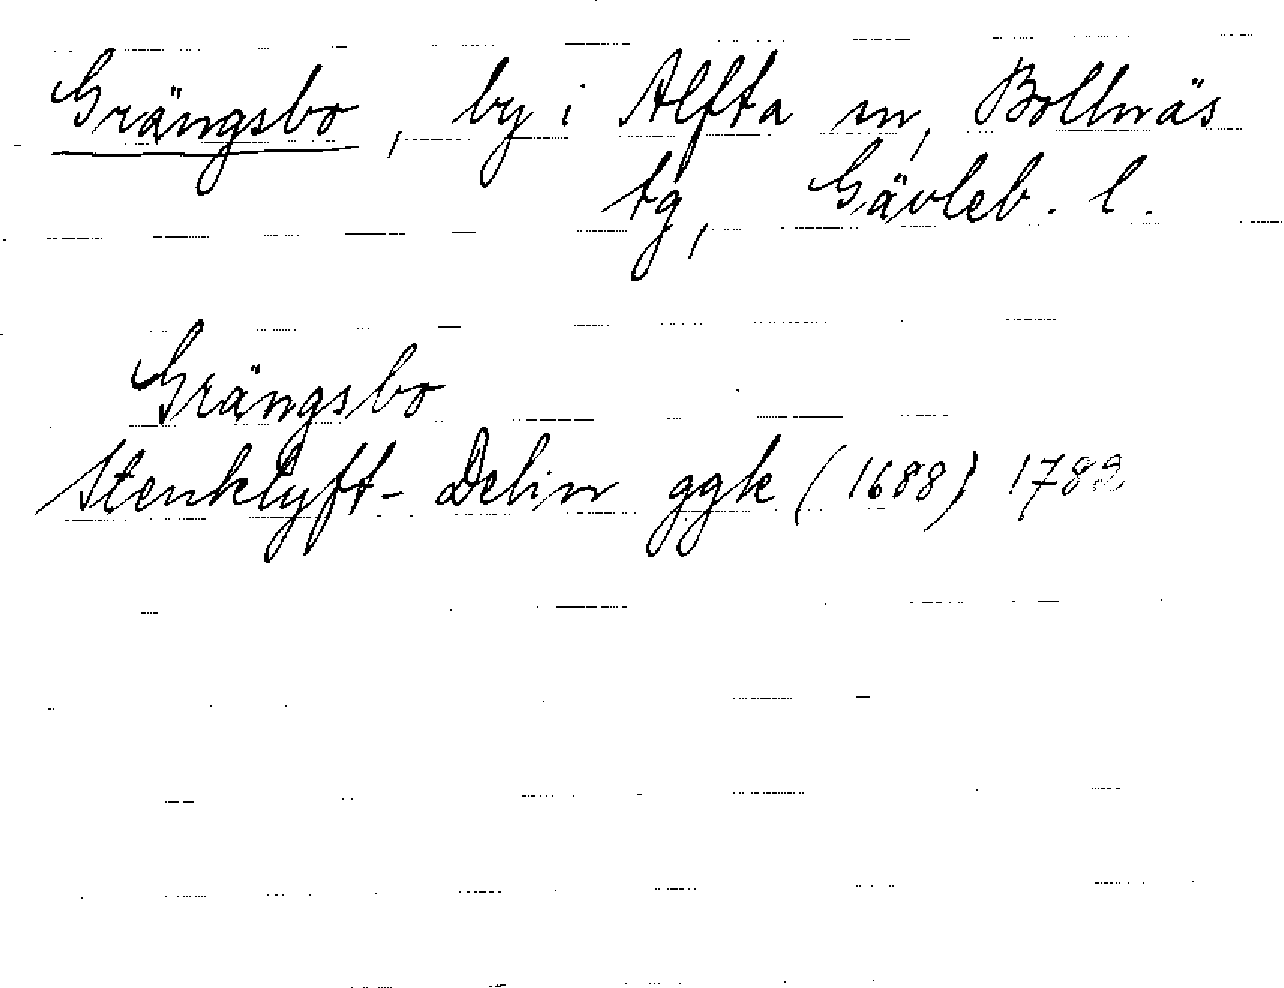 Grängsbo, by i Alfta sn, Bollnäs
tg, Gävleb. l.
Grängsbo
Stenklyft- Delin ggk (1688) 1788